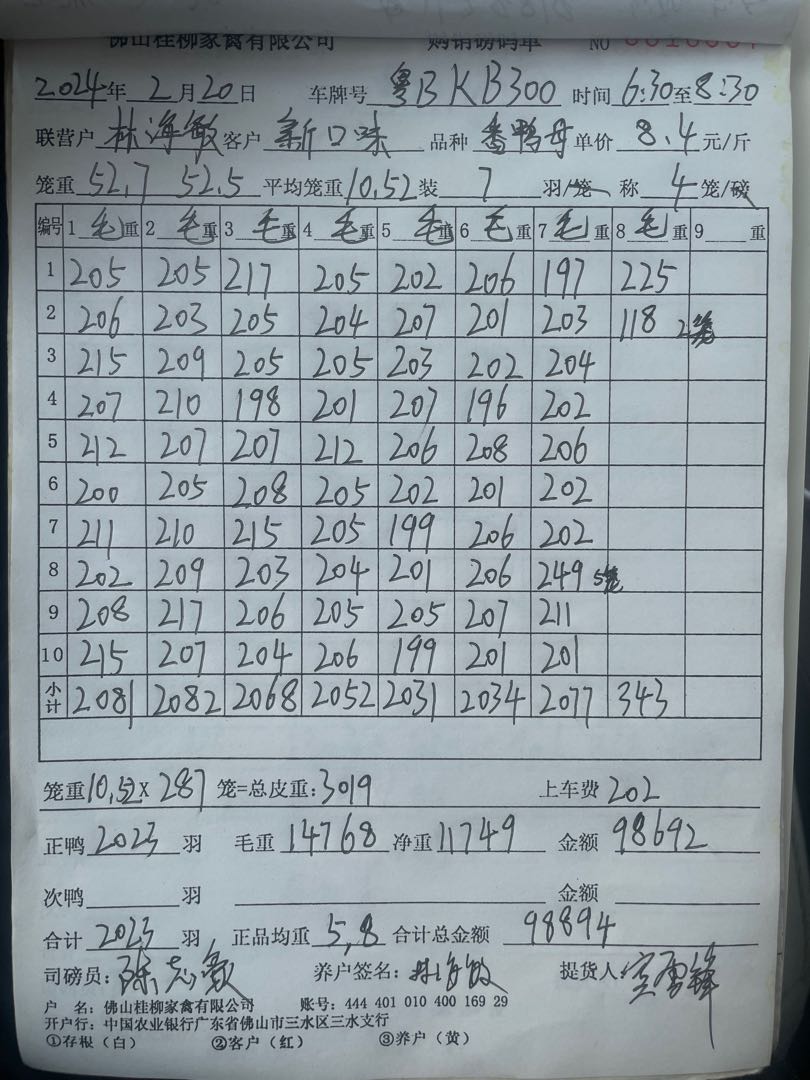 佛山桂柳家禽有限公司 购销磅码单 NO
2024年 2月20日 车牌号 粤BKB300 时间 6:30至8:30
联营户 林海敏 客户 新口味 品种 番鸭母 单价 8.4 元/斤
笼重 52.7 52.5 平均笼重 10.52 装 7 羽/笼 称 4 笼/磅
编号 1 毛 重 2 毛 重 3 毛 重 4 毛 重 5 毛 重 6 毛 重 7 毛 重 8 毛 重 9 重
1 205 205 217 205 202 206 197 225
2 206 203 205 204 207 201 203 118 2笼
3 215 209 205 205 203 202 204
4 207 210 198 201 207 196 202
5 212 207 207 212 206 208 206
6 200 205 208 205 202 201 202
7 211 210 215 205 199 206 202
8 202 209 203 204 201 206 249 5笼
9 208 217 206 205 205 207 211
10 215 207 204 206 199 201 201
小计 2081 2082 2068 2052 2031 2034 2077 343
笼重 10.52 X 287 笼=总皮重: 3019 上车费 202
正鸭 2023 羽 毛重 14768 净重 11749 金额 98692
次鸭 羽 金额
合计 2023 羽 正品均重 5,8 合计总金额 98894
司磅员: 陈志敏 养户签名: 林海敏 提货人:
户 名: 佛山桂柳家禽有限公司 账号: 444 401 010 400 169 29
开户行: 中国农业银行广东省佛山市三水区三水支行
①存根（白） ②客户（红） ③养户（黄）